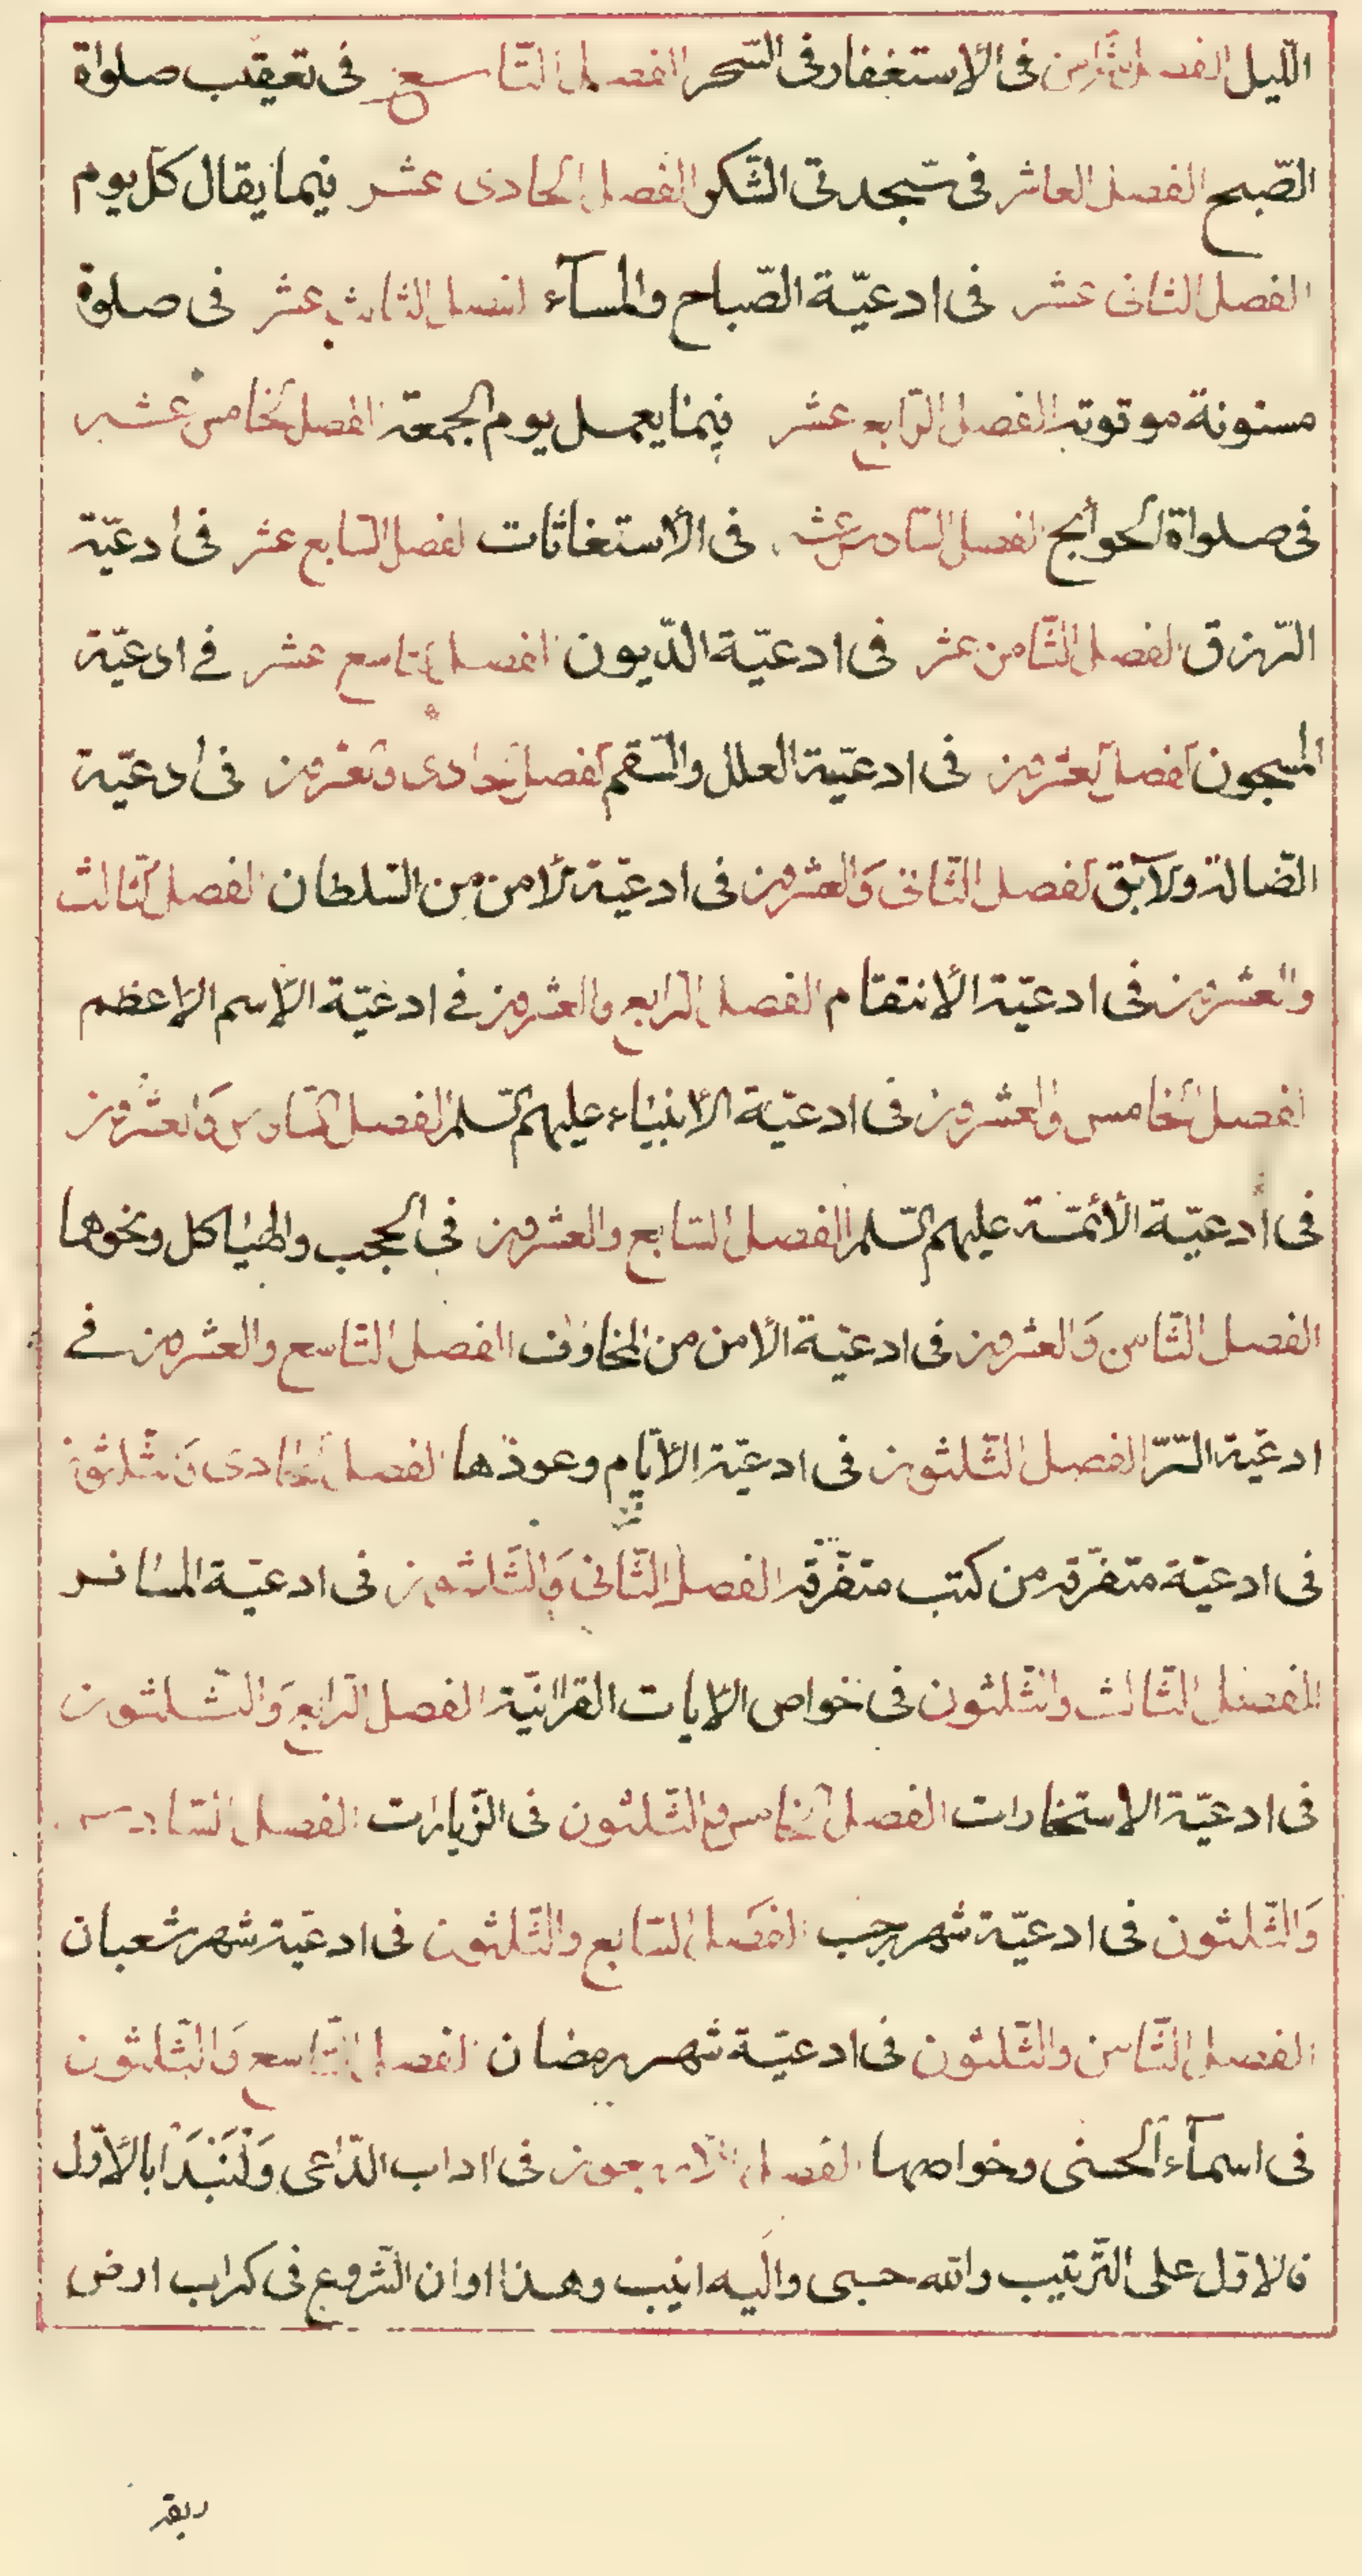 اللّيل الفصل الثّامن فى الأستغفار فى السّحر الفصل التّاسع فى تعقيب صلواة
الصّبح الفصل العاشر فى سجدتى الشّكر الفصل الحادى عشر فيما يقال كلّ يوم
الفصل الثانى عشر فى ادعيّة الصّباح والمسآء الفصل الثالث عشر فى صلوة
مسنونة موقوتة الفصل الرّابع عشر فيما يعمل يوم الجمعة الفصل الخامس عشر
فى صلواة الحوائج الفصل السّادس عشر فى الأستغاثات الفصل السّابع عشر فى ادعيّة
الرّزق الفصل الثّامن عشر فى ادعيّة الدّيون الفصل التاسع عشر فے ادعيّة
المسجون الفصل العشرون فى ادعيّة العلل والسّقم الفصل الحادى والعشرون فى ادعيّة
الضّالة ولآبق الفصل الثّانى وَالعشرون فى ادعيّة لأمن من السّلطان الفصل الثّالث
والعشرون فى ادعيّة الأنتقام الفصل الرّابع والعشرون فے ادعيّة الاّسم الاعظم
الفصل الخامس والعشرون فى ادعيّة الأنبيٰاء عليهم السّلم الفصل السّادس وَالعشرون
فى ادعيّة الأئمّة عليهم السّلم الفصل السّابع والعشرون فى الحجب والهيٰاكل ونحوها
الفصل الثّامن وَالعشرون فى ادعيّة الأمن من المخاوف الفصل التّاسع والعشرون فے
ادعيّة السّرّ الفصل الثّلثون فى ادعيّة الأيّام وعوذها الفصل الحادى وَالثّلثون
فى ادعيّة متفرّقة من كتب متفرّقة الفصل الثّانى وَالثّلثون فى ادعيّة المسٰافر
الفصل الثّالث والثّلثون فى خواص الاّيات القرانيّة الفصل الرّابع وَالثّلثون
فى ادعيّة الاستخارات الفصل الخامس والثّلثون فى الزّيارات الفصل السّادس
وَالثّلثون فى ادعيّة شهر رجب الفصل السّابع والثّلثون فى ادعيّة شهر شعبان
الفصل الثّامن والثّلثون فى ادعيّة شهر رمضان الفصل التّاسع وَالثّلثون
فى اسمآء الحسنى وخواصها الفصل الأربعون فى اداب الدّاعى وَلْنَبْدَا بالأوّل
فالاوّل على التّرتيب والله حسبى واليه انيب وهذا اوان الشّروع فى كراب ارض
ربقة